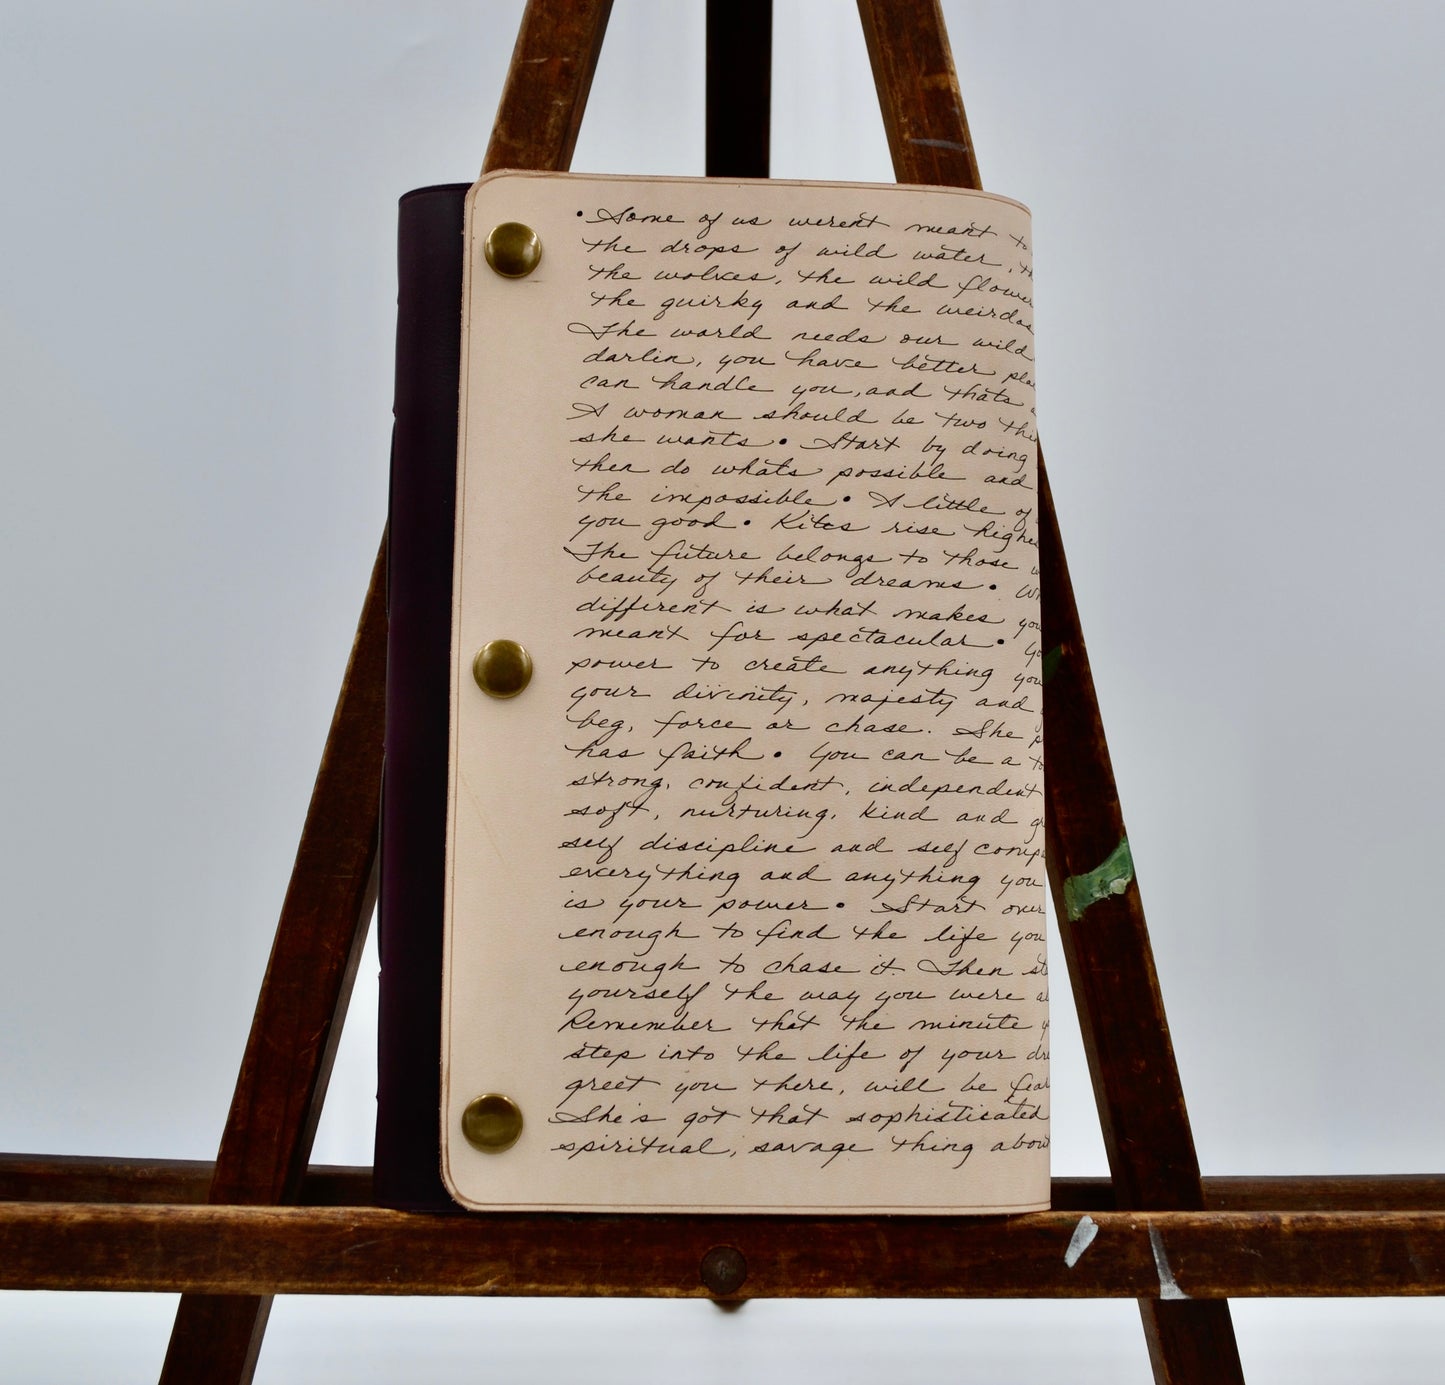 • Some of us werent meant to
the drops of wild water, th
the wolves, the wild flower
the quirky and the weirdos
The world needs our wild
darlin, you have better pla
can handle you, and thats a
A woman should be two thi
she wants • Start by doing
then do whats possible and
the impossible • A little of
you good • Kites rise highe
The future belongs to those w
beauty of their dreams • Wh
different is what makes you
meant for spectacular • Yo
power to create anything you
your divinity, majesty and
beg, force or chase. She p
has faith • You can be a to
strong, confident, independent
soft, nurturing, kind and gr
self discipline and self comp
everything and anything you
is your power • Start over
enough to find the life you
enough to chase it. Then st
yourself the way you were al
Remember that the minute y
step into the life of your dre
greet you there, will be fear
She's got that sophisticated
spiritual, savage thing about